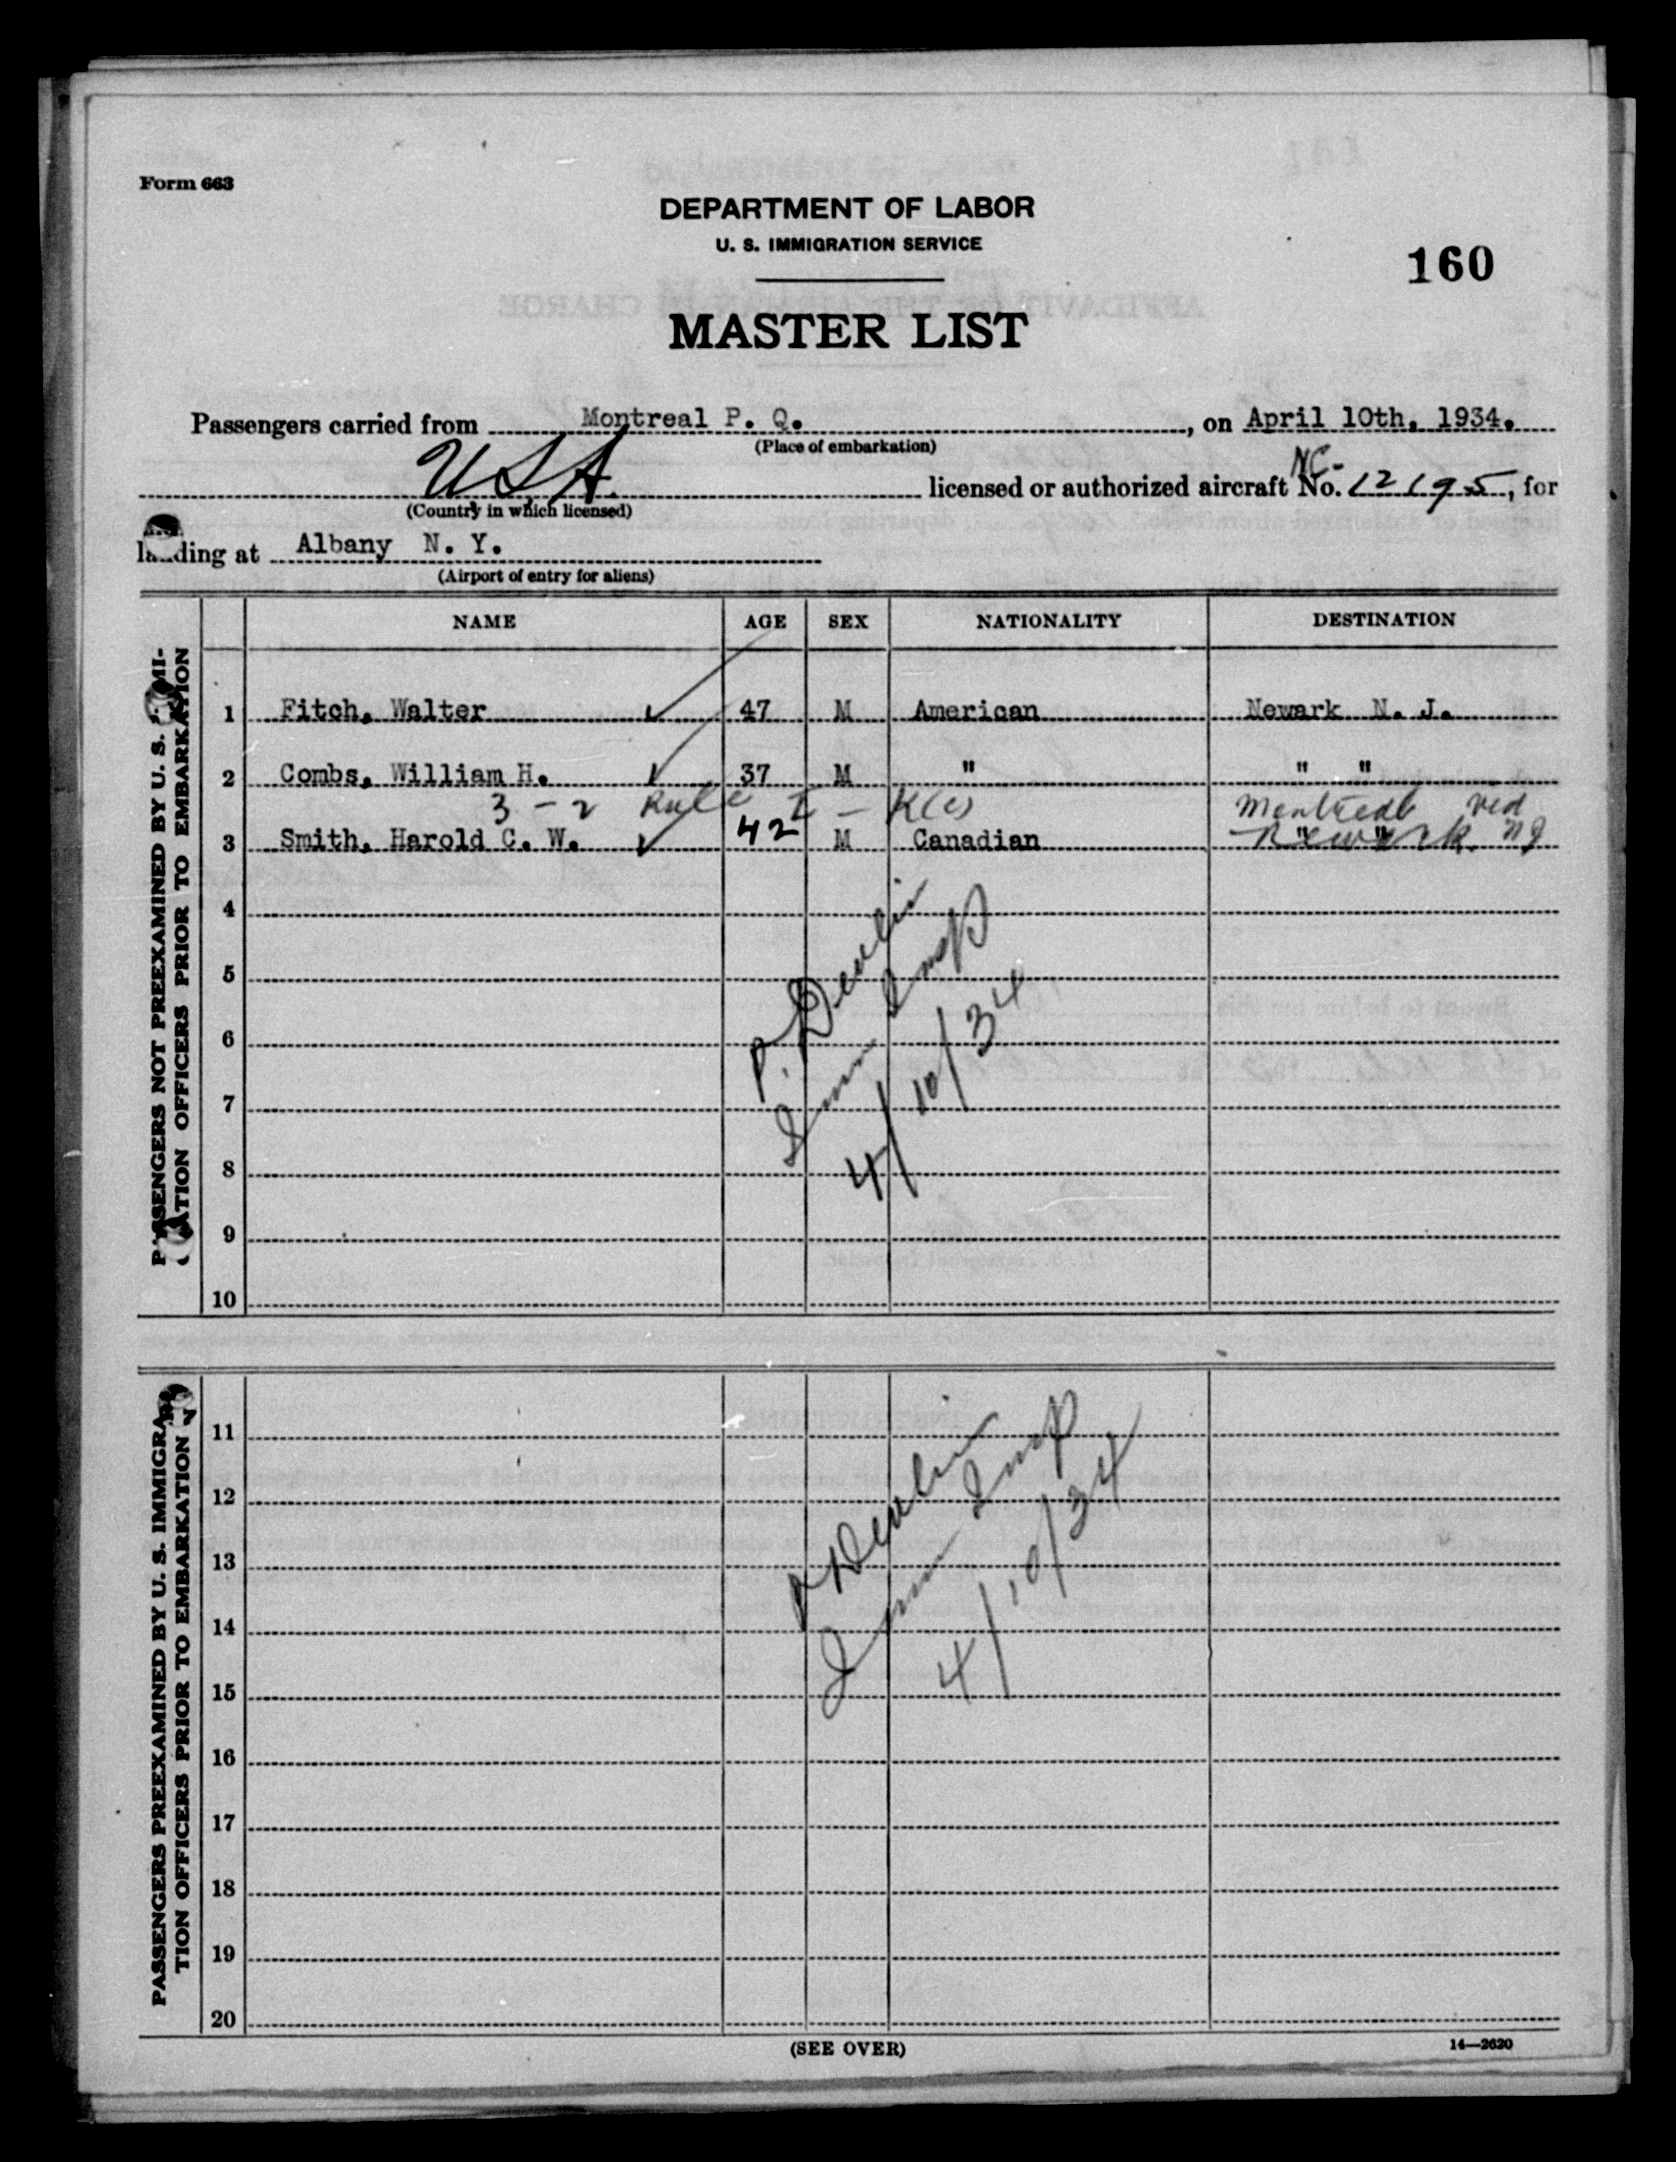 Form 663
DEPARTMENT OF LABOR
U. S. IMMIGRATION SERVICE
160
MASTER LIST
Passengers carried from Montreal P. Q. , on April 10th, 1934.
(Place of embarkation)
NC-
USA. licensed or authorized aircraft No. 12195, for
(Country in which licensed)
landing at Albany N. Y.
(Airport of entry for aliens)
NAME AGE SEX NATIONALITY DESTINATION
PASSENGERS NOT PREEXAMINED BY U. S. IMMI-
GRATION OFFICERS PRIOR TO EMBARKATION
1 Fitch, Walter ✓ 47 M American Newark N. J.
2 Combs, William H. ✓ 37 M " " "
3 - 2 Rule I - K(c) Montreal
3 Smith, Harold C. W. ✓ 42 M Canadian " " Newark. NJ
4
5
6
7
8
9
10
P. Devlin
Imm Insp
4/10/34
PASSENGERS PREEXAMINED BY U. S. IMMIGRA-
TION OFFICERS PRIOR TO EMBARKATION
11
12
13
14
15
16
17
18
19
20
P Devlin
Imm Insp
4/10/34
(SEE OVER)
14—2620